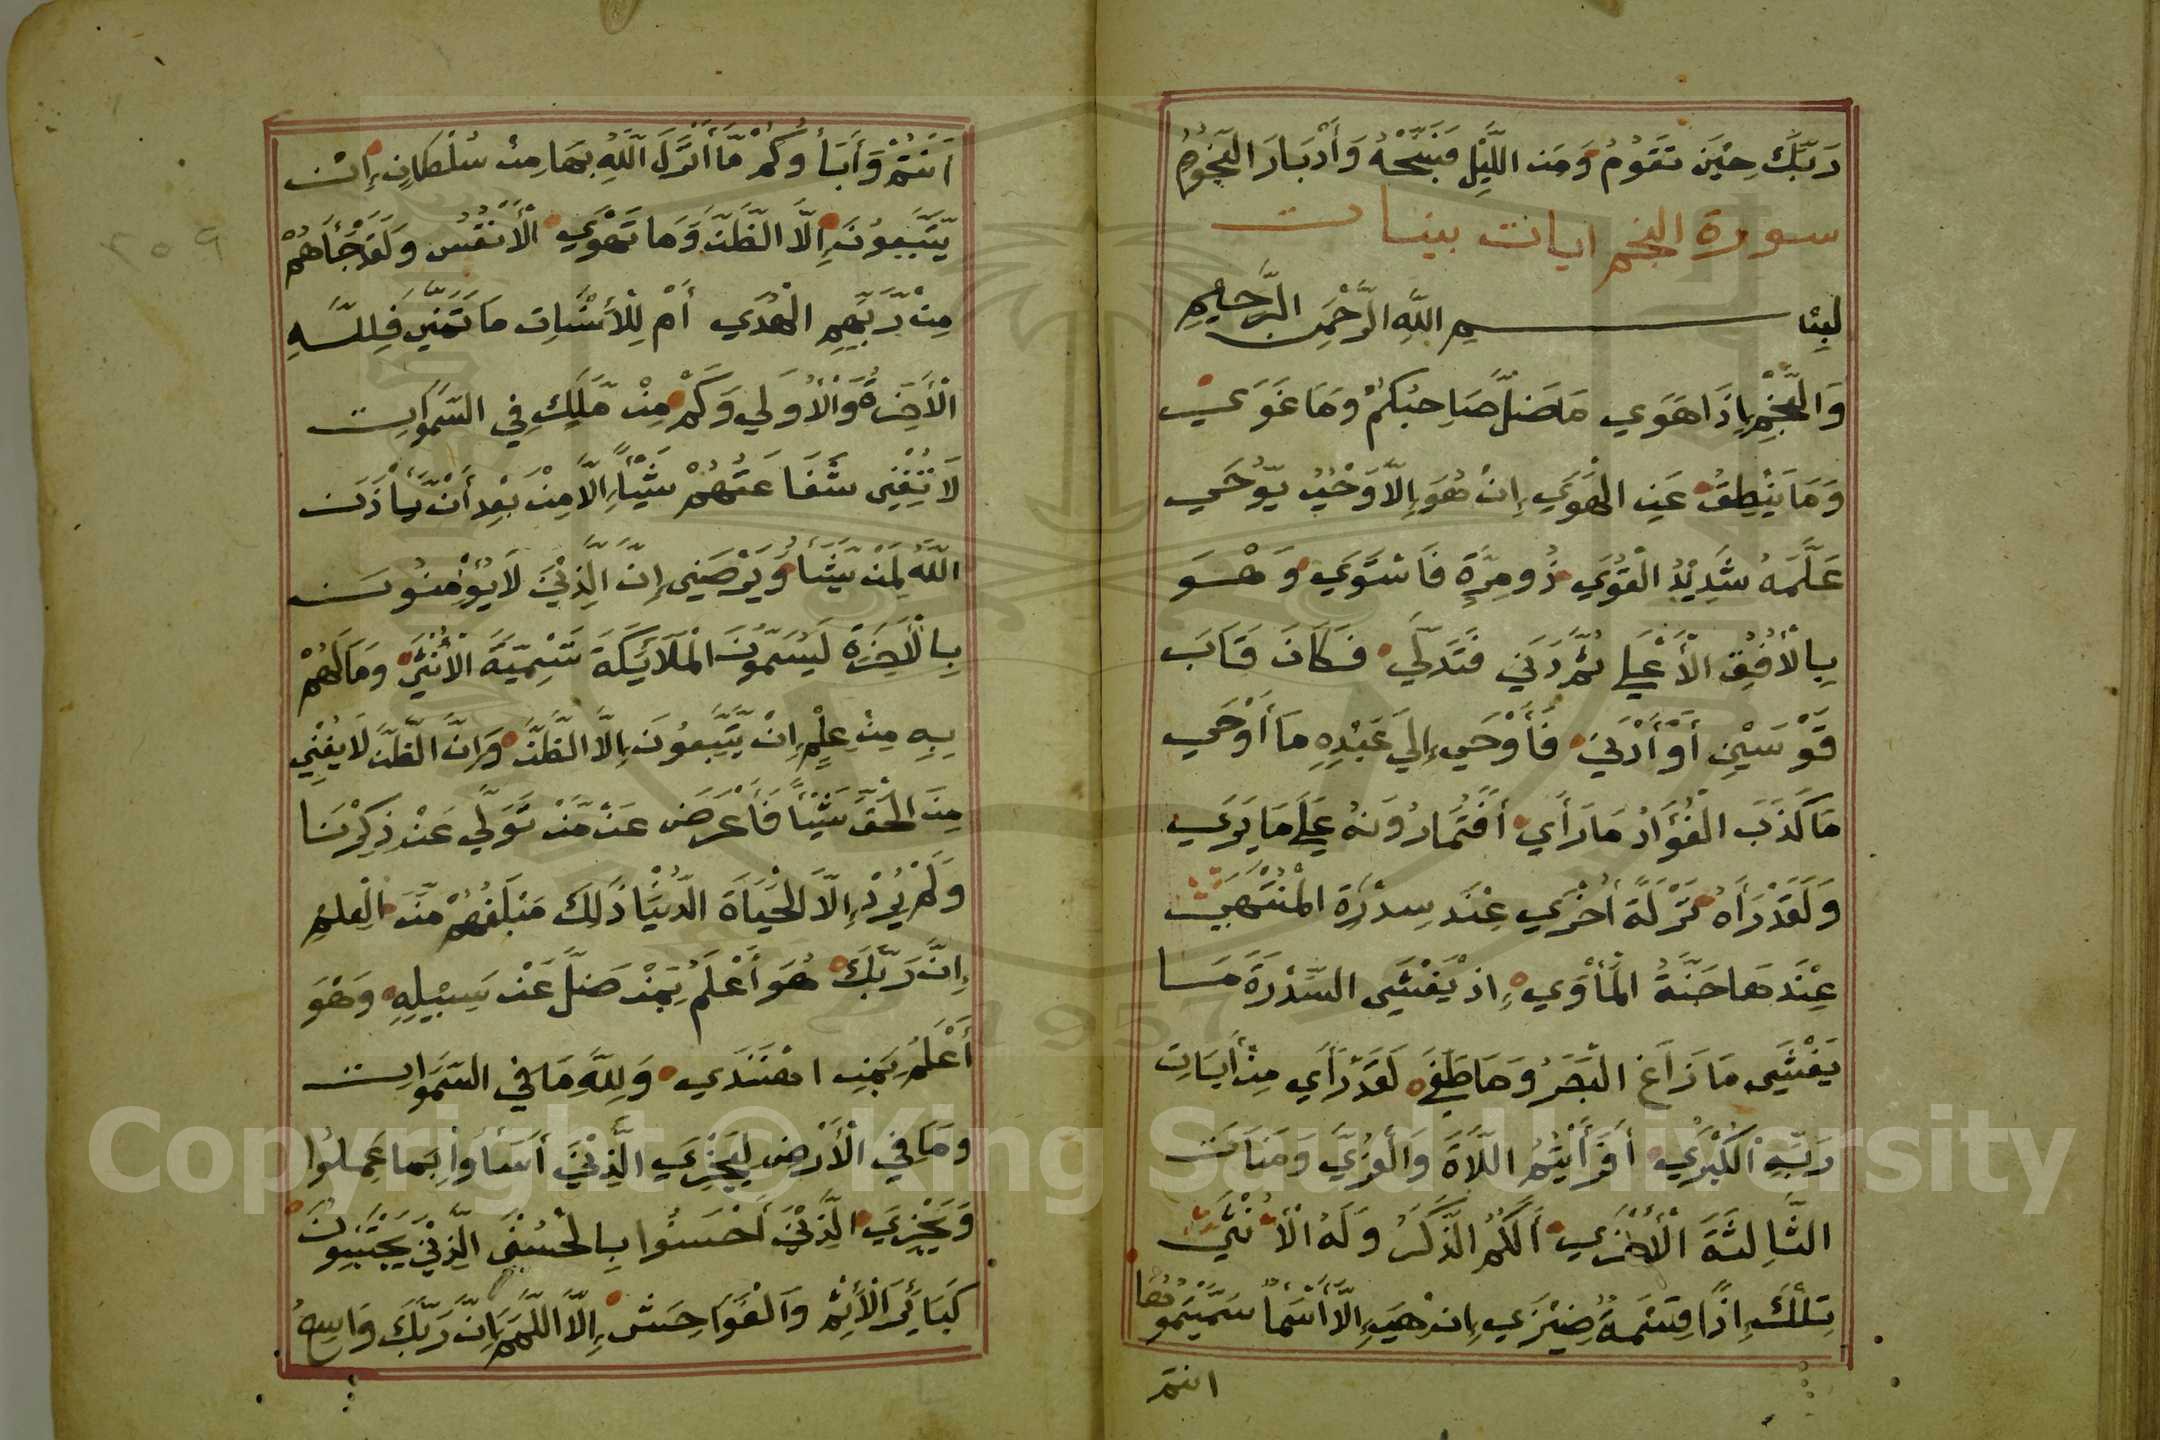 رَبِّكَ حِيْنَ تَقُوْمُ وَمِنَ اللَّيْلِ فَسَبِّحْهُ وَأَدْبَارَ النُّجُوْمِ
سورة النجم ايات بينات
بِسْمِ اللَّهِ الرَّحْمٰنِ الرَّحِيْمِ
وَالنَّجْمِ إِذَا هَوَي مَا ضَلَّ صَاحِبُكُمْ وَمَا غَوَي
وَمَا يَنْطِقُ عَنِ الْهَوَي إِنْ هُوَ إِلَّا وَحْيٌ يُّوْحَي
عَلَّمَهُ شَدِيْدُ الْقُوَي ذُو مِرَّةٍ فَاسْتَوَي وَهْوَ
بِالْأُفُقِ الْأَعْلي ثُمَّ دَنَي فَتَدَلَّي فَكَانَ قَابَ
قَوْسَيْنِ أَوْ أَدْنَي فَأَوْحَي إِلَي عَبْدِهِ مَا أَوْحَي
مَا كَذَبَ الْفُؤَادُ مَا رَأَي أَفَتُمَارُوْنَهُ عَلَي مَا يَرَي
وَلَقَدْ رَأَهُ نَزْلَةً أُخْرَي عِنْدَ سِدْرَةِ الْمُنْتَهَي
عِنْدَهَا جَنَّةُ الْمَأْوَي إِذْ يَغْشَي السِّدْرَةَ مَا
يَغْشَي مَا زَاغَ الْبَصَرُ وَمَا طَغَي لَقَدْ رَأَي مِنْ أَيَاتِ
رَبِّهِ الْكُبْرَي أَفَرَأَيْتُمُ اللَّاةَ وَالْعُزَّي وَمَنَاتَ
الثَّالِثَةَ الْأُخْرَي أَلَكُمُ الذَّكَرُ وَلَهُ الْأُنْثَي
تِلْكَ إِذًا قِسْمَةٌ ضِيْزَي إِنْ هِيَ إِلَّا أَسْمَاءٌ سَمَّيْتُمُوْهَا
انتم
أَنْتُمْ وَأَبَاؤُكُمْ مَّا أَنْزَلَ اللَّهُ بِهَا مِنْ سُلْطَانٍ إِنْ
يَّتَّبِعُوْنَ إِلَّا الظَّنَّ وَمَا تَهْوَي الْأَنْفُسُ وَلَقَدْ جَأَهُمْ
مِنْ رَّبِّهِمِ الْهُدَي أَمْ لِلْأِنْسَانِ مَا تَمَنَّي فَلِلَّهِ
الْأَخِرَةُ وَالْأُوْلَي وَكَمْ مِنْ مَّلَكٍ فِي السَّمَوَاتِ
لَا تُغْنِي شَفَاعَتُهُمْ شَيْأً إِلَّا مِنْ بَعْدِ أَنْ يَّأْذَنَ
اللَّهُ لِمَنْ يَّشَأُ وَيَرْضَي إِنَّ الَّذِيْنَ لَا يُؤْمِنُوْنَ
بِالْأَخِرَةِ لَيُسَمُّوْنَ الْمَلَائِكَةَ تَسْمِيَةَ الْأُنْثَي وَمَا لَهُمْ
بِهِ مِنْ عِلْمٍ إِنْ يَّتَّبِعُوْنَ إِلَّا الظَّنَّ وَإِنَّ الظَّنَّ لَا يُغْنِي
مِنَ الْحَقِّ شَيْئًا فَأَعْرِضْ عَنْ مَّنْ تَوَلَّي عَنْ ذِكْرِنَا
وَلَمْ يُرِدْ إِلَّا الْحَيَاةَ الدُّنْيَا ذَلِكَ مَبْلَغُهُمْ مِّنَ الْعِلْمِ
إِنَّ رَبَّكَ هُوَ أَعْلَمُ بِمَنْ ضَلَّ عَنْ سَبِيْلِهِ وَهْوَ
أَعْلَمُ بِمَنِ اهْتَدَي وَلِلَّهِ مَا فِي السَّمَوَاتِ
وَمَا فِي الْأَرْضِ لِيَجْزِيَ الَّذِيْنَ أَسَأُوْا بِمَا عَمِلُوْا
وَيَجْزِيَ الَّذِيْنَ أَحْسَنُوا بِالْحُسْنَي الَّذِيْنَ يَجْتَنِبُوْنَ
كَبَائِرَ الْأِثْمِ وَالْفَوَاحِشَ إِلَّا اللَّمَمَ إِنَّ رَبَّكَ وَاسِعُ
٢٥٩
Copyright © King Saud University
1957